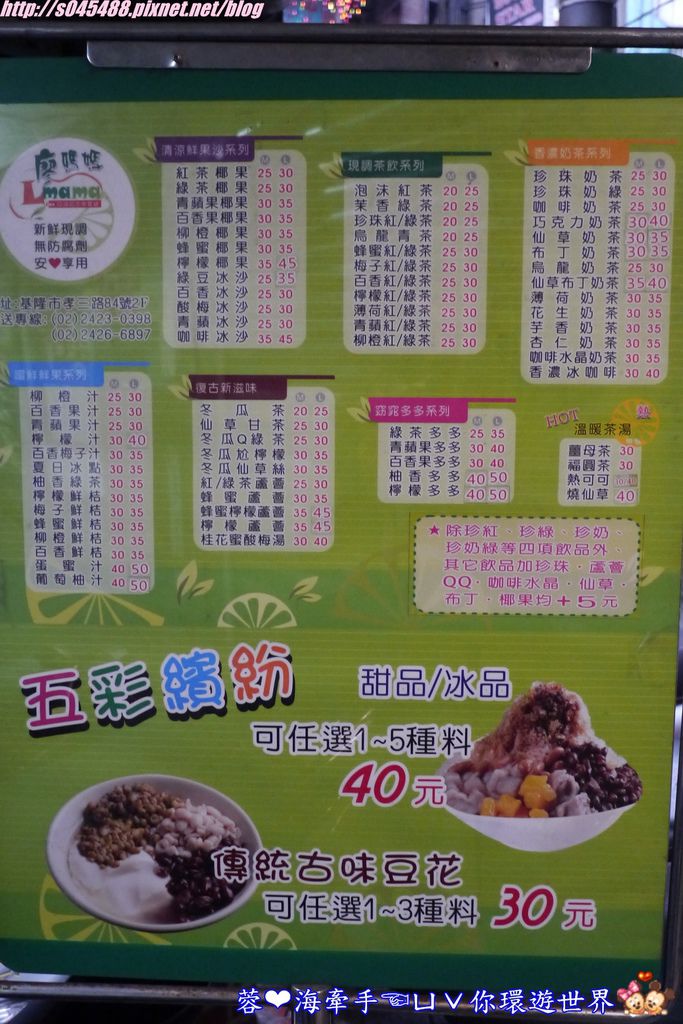 http://s045488.pixnet.net/blog
廖媽媽
Lmama
新鮮現調
無防腐劑
安♥享用
址:基隆市孝三路84號2F
送專線:(02)2423-0398
(02)2426-6897
清涼鮮果沙系列 M L
紅茶椰果 25 30
綠茶椰果 25 30
青蘋果椰果 30 35
百香果椰果 30 35
柳橙椰果 30 35
蜂蜜椰果 30 35
檸檬椰果 35 45
綠豆冰沙 25 35
百香冰沙 25 30
酸梅冰沙 25 30
青蘋冰沙 25 30
咖啡冰沙 35 45
現調茶飲系列 M L
泡沫紅茶 20 25
茉香綠茶 20 25
珍珠紅/綠茶 20 25
烏龍青茶 20 25
蜂蜜紅/綠茶 25 30
梅子紅/綠茶 25 30
百香紅/綠茶 25 30
檸檬紅/綠茶 25 30
薄荷紅/綠茶 25 30
青蘋紅/綠茶 25 30
柳橙紅/綠茶 25 30
香濃奶茶系列 M L
珍珠奶茶 25 30
珍珠奶綠 25 30
咖啡奶茶 25 30
巧克力奶茶 30 40
仙草奶茶 30 35
布丁奶茶 30 35
烏龍奶茶 25 30
仙草布丁奶茶 35 40
薄荷奶茶 30 35
花生奶茶 30 35
芋香奶茶 30 35
杏仁奶茶 30 35
咖啡水晶奶茶 30 35
香濃冰咖啡 30 40
鮮鮮果系列 M L
柳橙汁 25 30
百香果汁 25 30
青蘋果汁 25 30
檸檬汁 30 40
百香梅子汁 30 35
夏日冰點 30 35
柚香綠茶 30 35
檸檬鮮桔 30 35
梅子鮮桔 30 35
蜂蜜鮮桔 30 35
柳橙鮮桔 30 35
百香鮮桔 30 35
蛋蜜汁 40 50
葡萄柚汁 40 50
復古新滋味 M L
冬瓜茶 20 25
仙草甘茶 25 30
冬瓜Q綠茶 25 30
冬瓜尬檸檬 30 35
冬瓜仙草絲 30 35
紅/綠茶蘆薈 25 30
蜂蜜蘆薈 30 35
蜂蜜檸檬蘆薈 35 45
檸檬蘆薈 35 45
桂花蜜酸梅湯 30 40
窈窕多多系列 M L
綠茶多多 25 35
青蘋果多多 30 40
百香果多多 30 40
柚香多多 40 50
檸檬多多 40 50
HOT 熱
溫暖茶湯
薑母茶 30
福圓茶 30
熱可可
燒仙草 40
★除珍紅、珍綠、珍奶、
珍奶綠等四項飲品外、
其它飲品加珍珠·蘆薈
QQ·咖啡水晶·仙草·
布丁·椰果均+5元
五彩繽紛
甜品/冰品
可任選1~5種料
40元
傳統古味豆花
可任選1~3種料 30元
蓉❤海牽手☜ㄩ∨你環遊世界